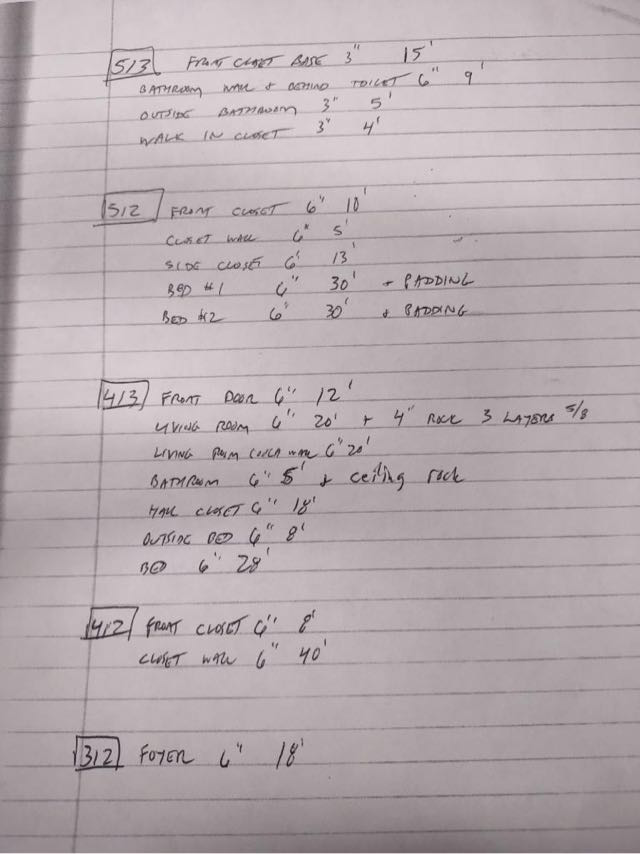 513 FRONT CLOSET BASE 3" 15'
BATHROOM WALL + BEHIND TOILET 6" 9'
OUTSIDE BATHROOM 3" 5'
WALK IN CLOSET 3" 4'
512 FRONT CLOSET 6" 10'
CLOSET WALL 6" 5'
SIDE CLOSET 6' 13'
BED #1 6" 30' + PADDING
BED #2 6' 30' + PADDING
413 FRONT DOOR 6" 12'
LIVING ROOM 6" 20' + 4" ROCK 3 LAYERS 5/8
LIVING ROOM COUCH WALL 6" 20'
BATHROOM 6" 5' + ceiling rock
HALL CLOSET 6" 18'
OUTSIDE BED 6" 8'
BED 6" 28'
412 FRONT CLOSET 6" 8'
CLOSET WALL 6" 40'
312 FOYER 6" 18'